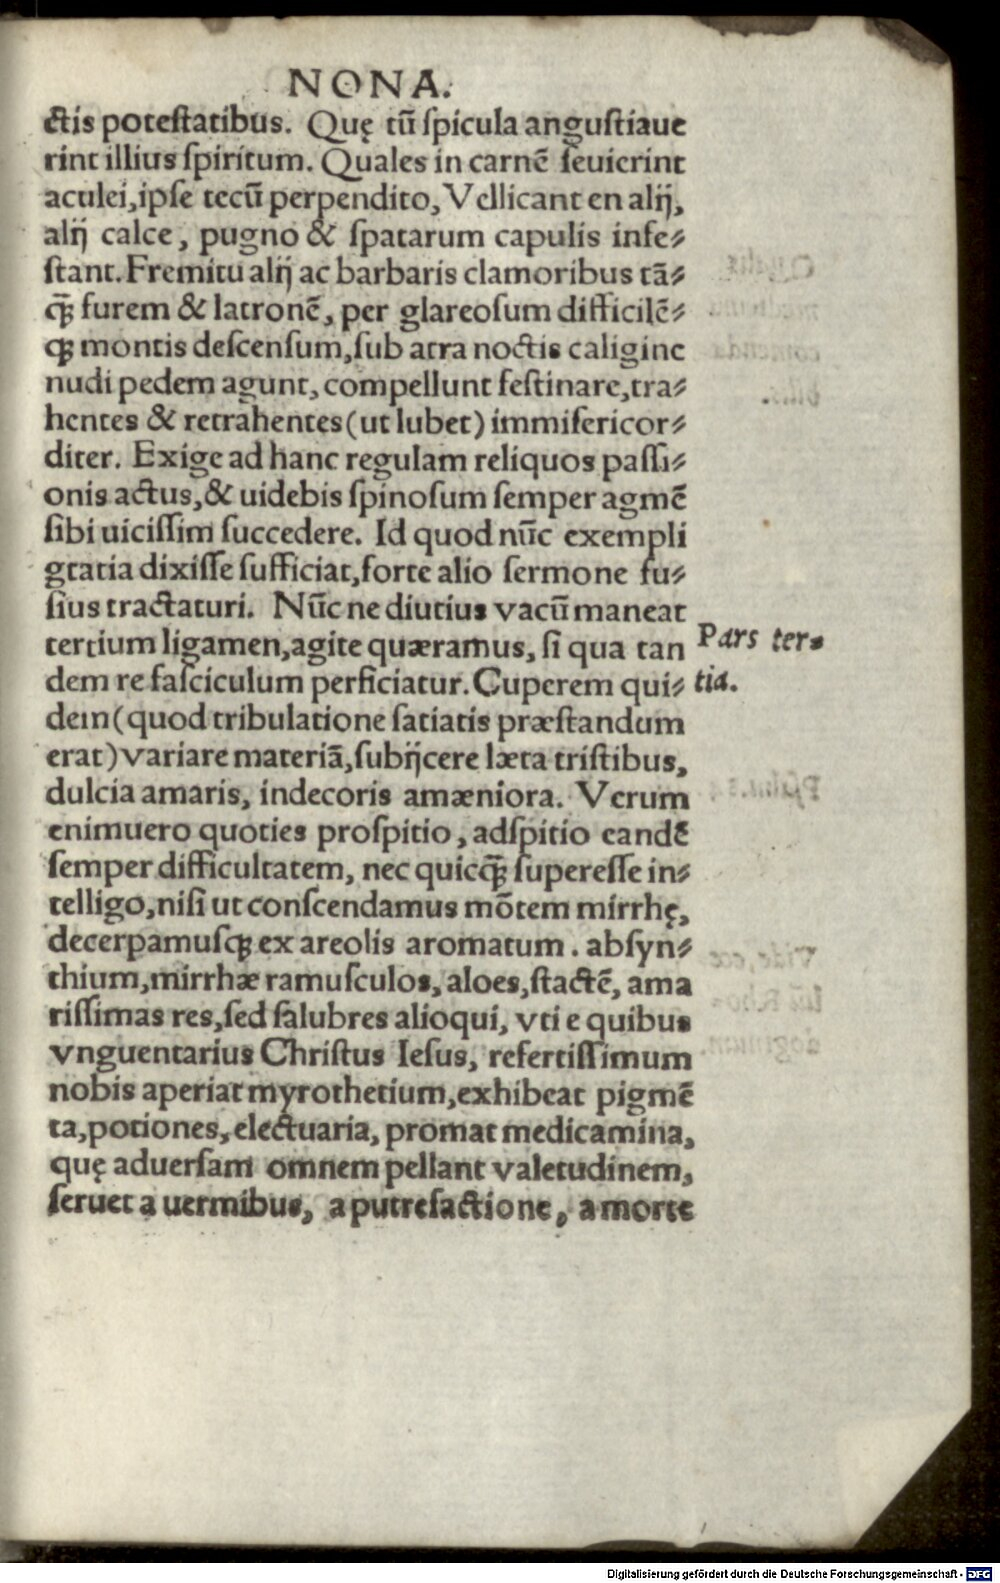 NONA.
ctis potestatibus. Quę tū spicula angustiaue
rint illius spiritum. Quales in carnē seuierint
aculei, ipse tecū perpendito, Vellicant en alij,
alij calce, pugno & spatarum capulis infe⸗
stant. Fremitu alij ac barbaris clamoribus tā⸗
q̃ furem & latronē, per glareosum difficilē⸗
qꝫ montis descensum, sub atra noctis caligine
nudi pedem agunt, compellunt festinare, tra⸗
hentes & retrahentes (ut lubet) immisericor⸗
diter. Exige ad hanc regulam reliquos passi⸗
onis actus, & uidebis spinosum semper agmē
sibi uicissim succedere. Id quod nūc exempli
gratia dixisse sufficiat, forte alio sermone fu⸗
sius tractaturi. Nūc ne diutius vacū maneat
tertium ligamen, agite quæramus, si qua tan
dem re fasciculum perficiatur. Cuperem qui⸗
dem (quod tribulatione satiatis præstandum
erat) variare materiā, subijcere læta tristibus,
dulcia amaris, indecoris amæniora. Verum
enimuero quoties prospitio, adspitio eandē
semper difficultatem, nec quicq̃ superesse in⸗
telligo, nisi ut conscendamus mōtem mirrhę,
decerpamusqꝫ ex areolis aromatum. absyn⸗
thium, mirrhæ ramusculos, aloes, stactē, ama
rissimas res, sed salubres alioqui, vti e quibus
vnguentarius Christus Iesus, refertissimum
nobis aperiat myrothetium, exhibeat pigmē
ta, potiones, electuaria, promat medicamina,
quę aduersam omnem pellant valetudinem,
seruet a uermibus, a putrefactione, a morte
Pars ter⸗
tia.
Digitalisierung gefördert durch die Deutsche Forschungsgemeinschaft - DFG